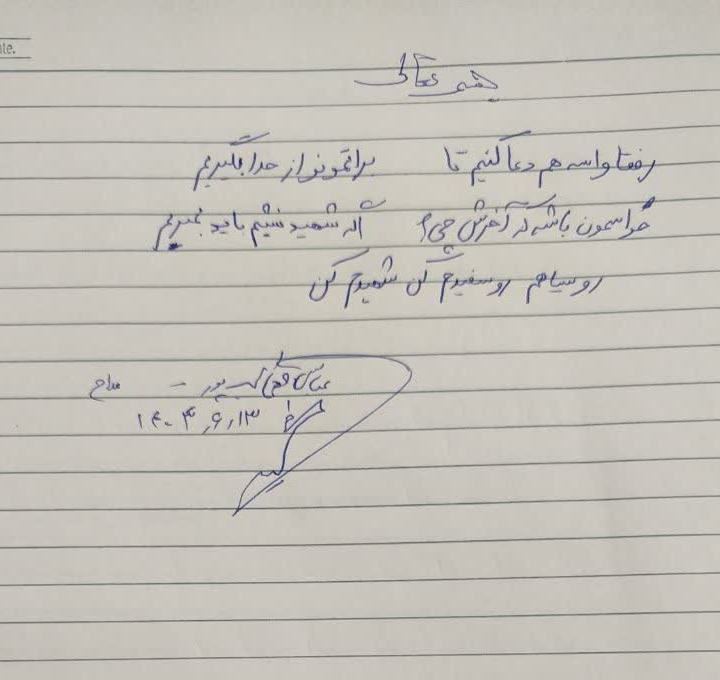 ate.
بسمه تعالی
رفقا واسه هم دعا کنیم تا براتمونو از خدا بگیریم
حواسمون باشه که آخرش چی؟ اگه شهید نشیم باید بمیریم
رو سیاهم رو سفیدم کن شهیدم کن
عباس پور - مداح
۱۴۰۴,۶,۱۳